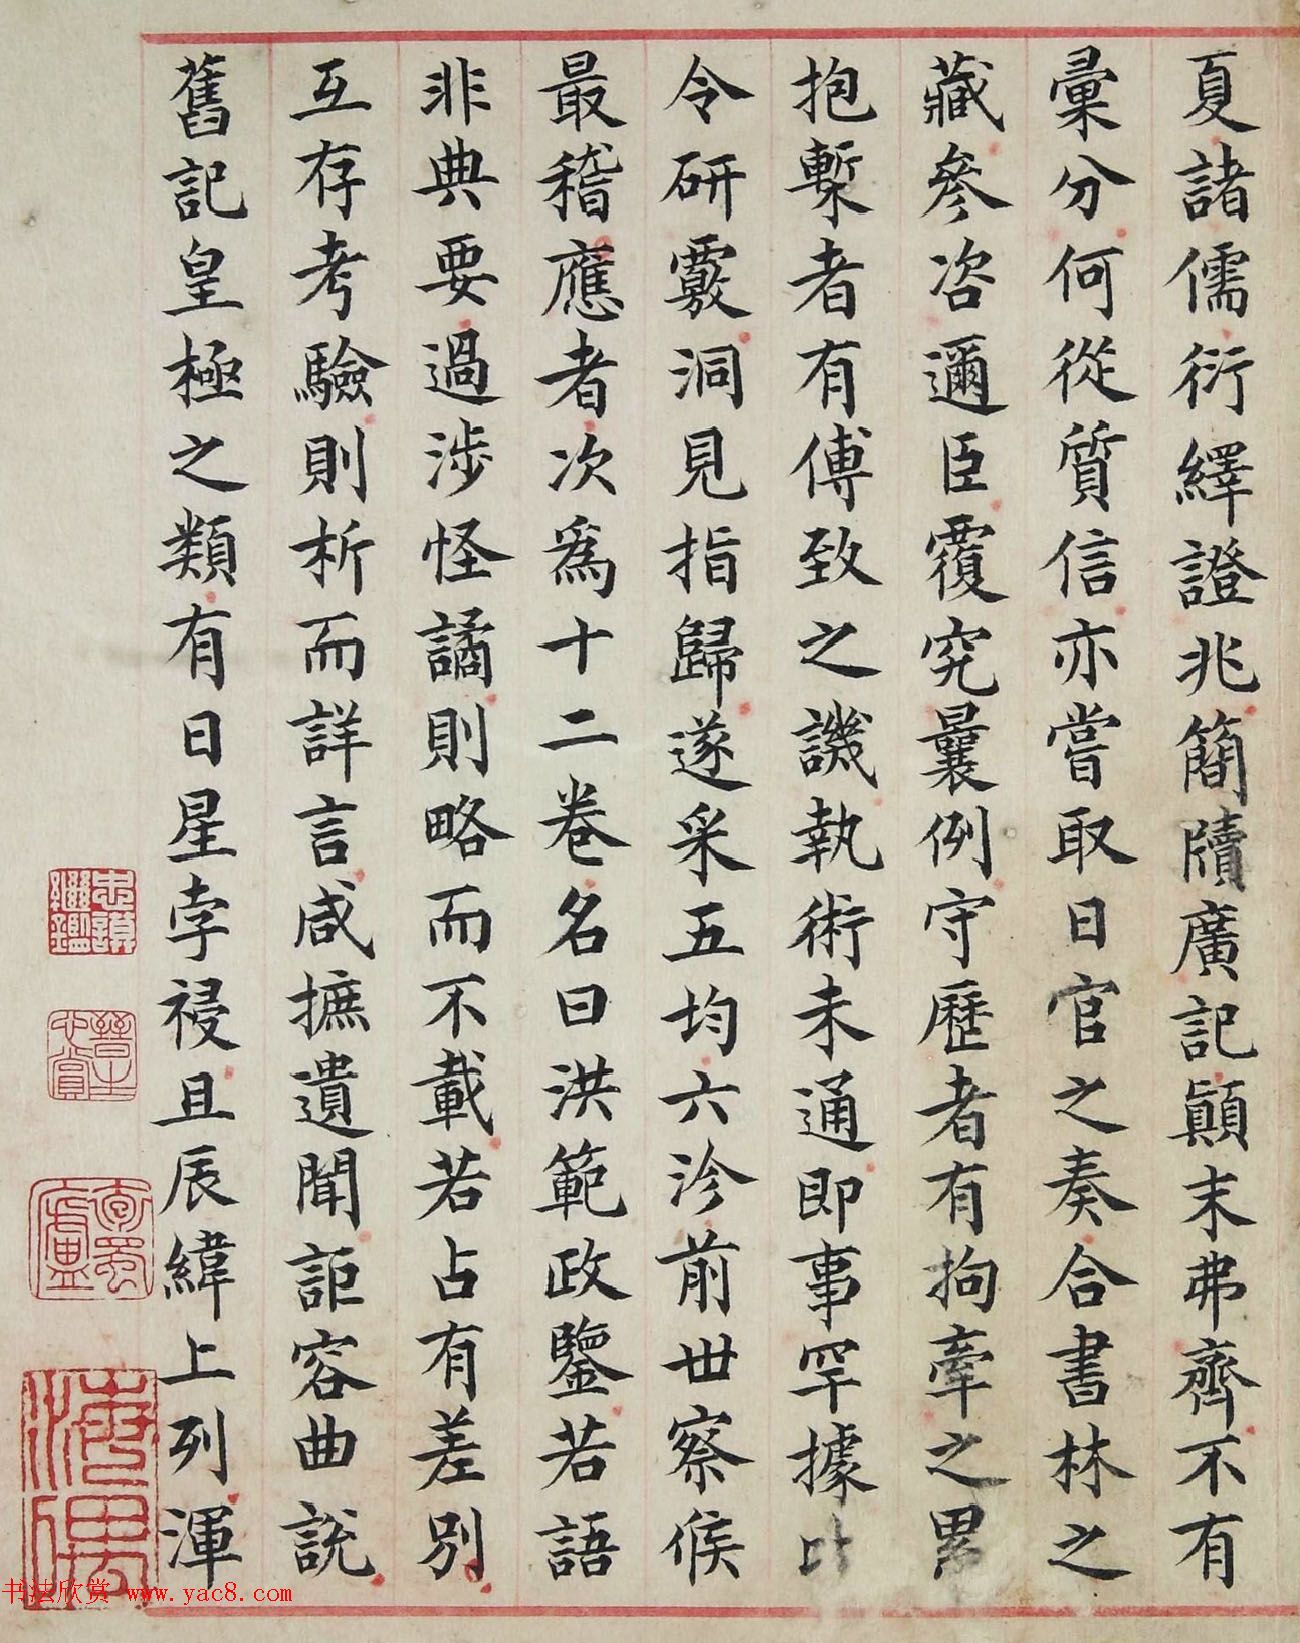 夏諸儒衍繹證兆簡牘廣記顛末弗齊不有
彙分何從質信亦嘗取日官之奏合書林之
藏參咨邇臣覆究曩例守歷者有拘牽之累
抱槧者有傅致之譏執術未通即事罕據比
令研覈洞見指歸遂采五均六沴前世察候
最稽應者次為十二卷名曰洪範政鑒若語
非典要過涉怪譎則略而不載若占有差別
互存考驗則析而詳言咸摭遺聞詎容曲說
舊記皇極之類有日星孛祲且辰緯上列渾
忠謨繼鑑
晉生心賞
書法欣赏 www.yac8.com